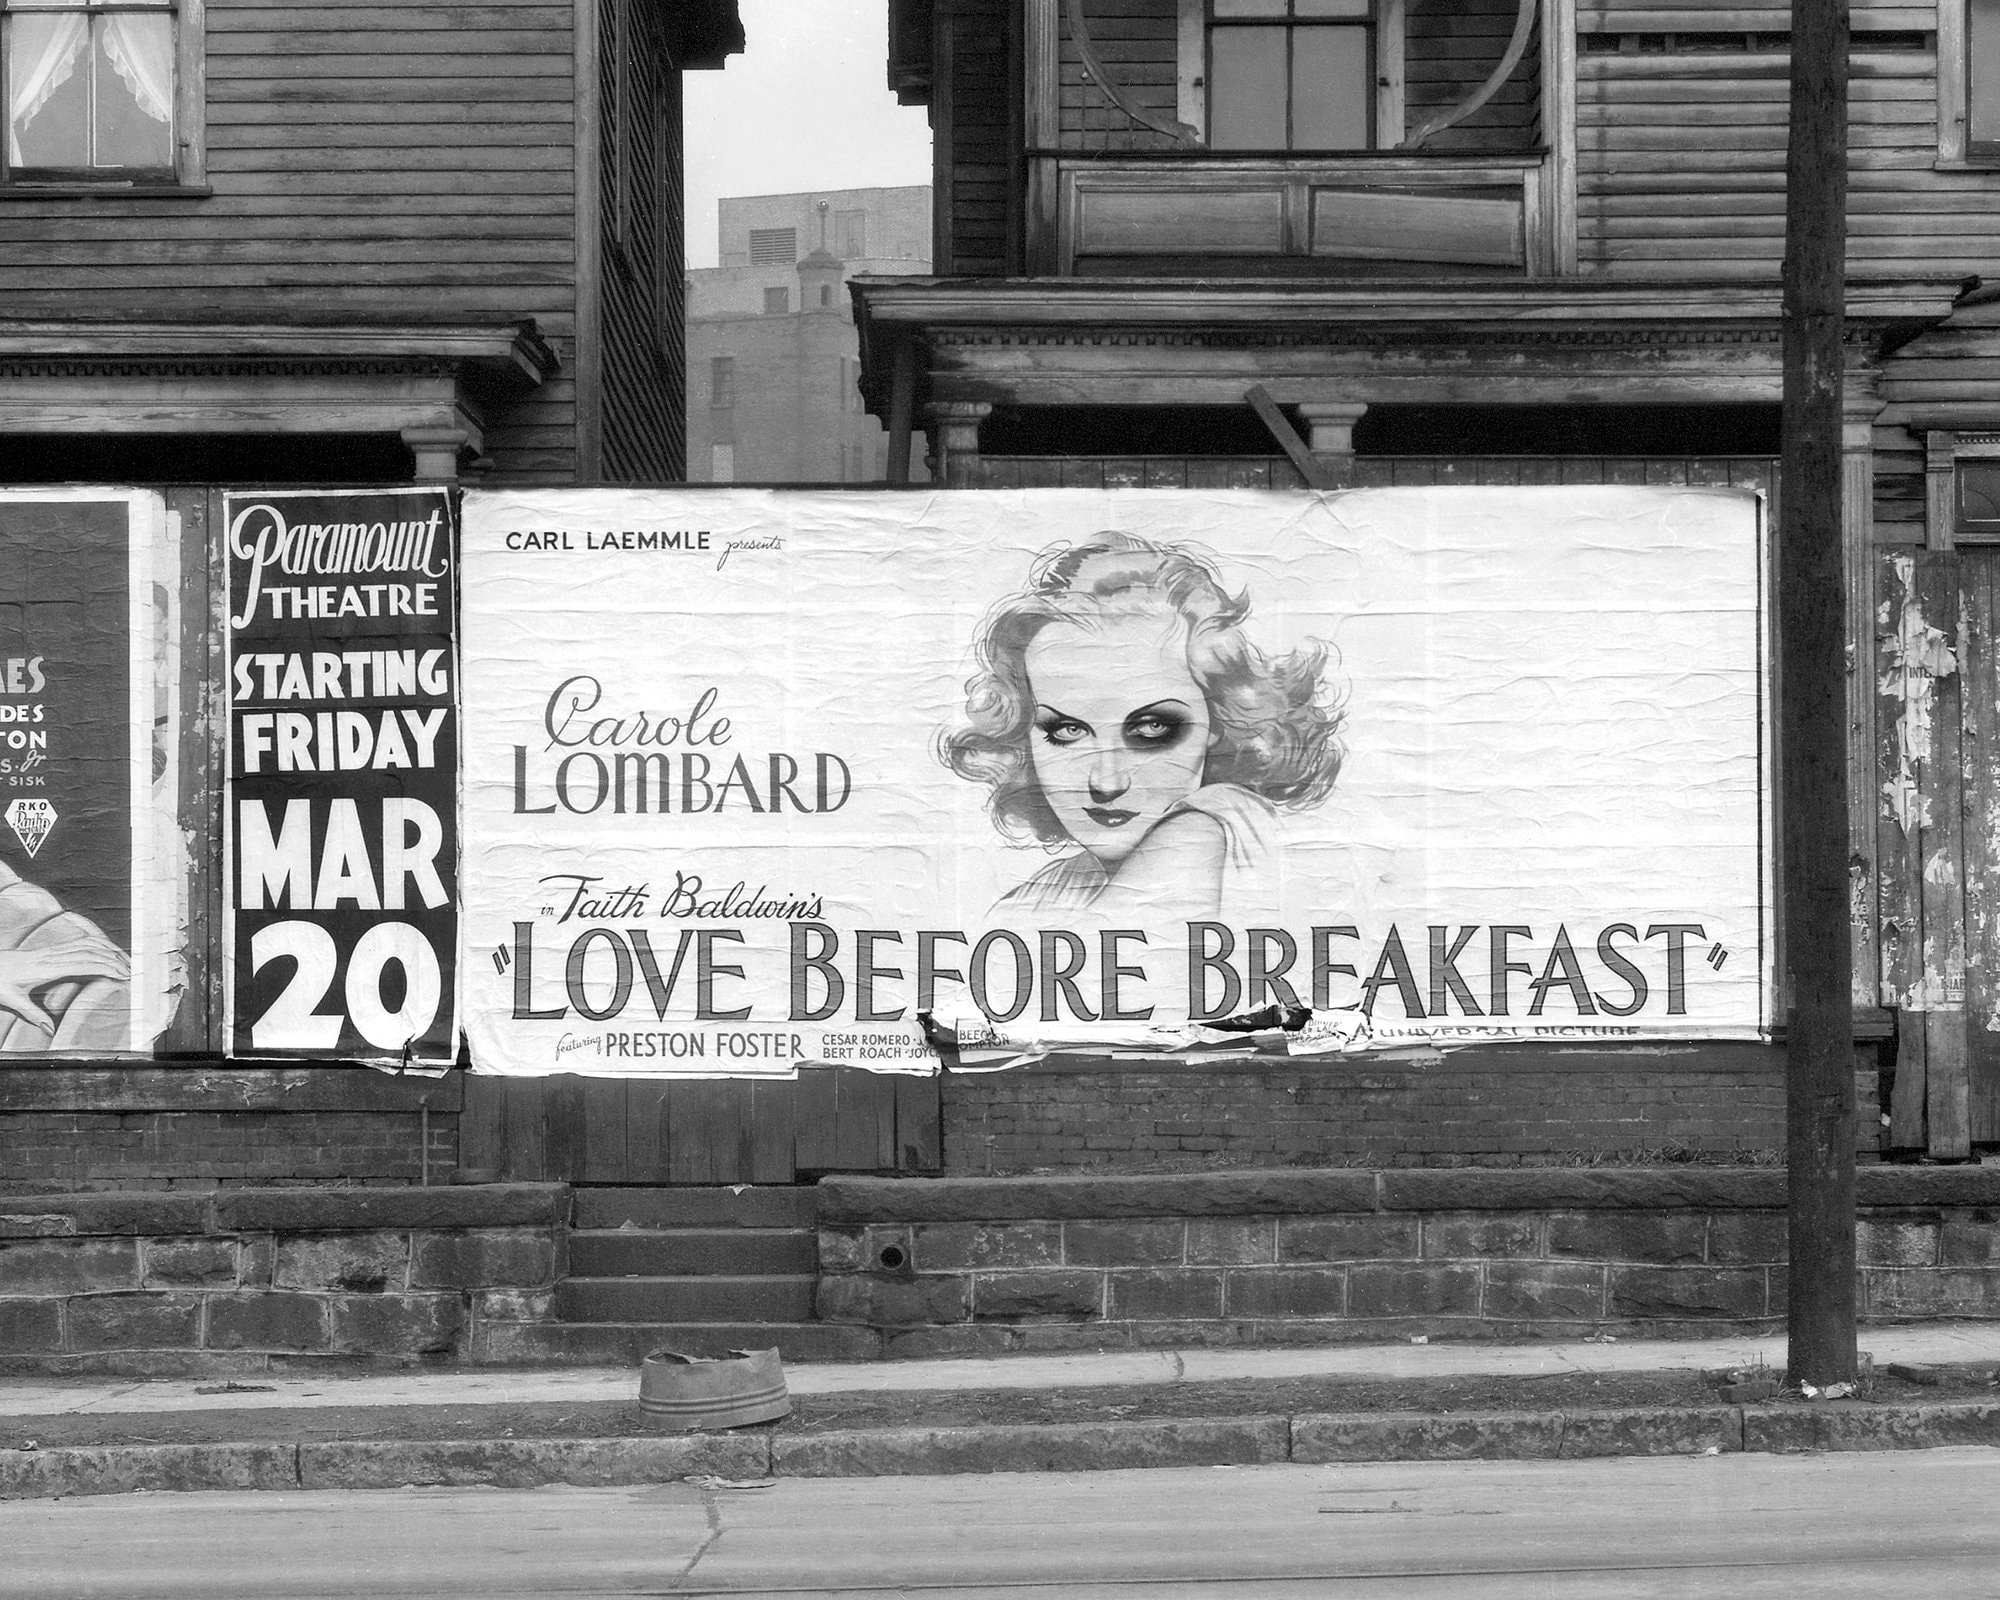 AES
DES
TON
S. Jr
SISK
RKO
Radio
Paramount
THEATRE
STARTING
FRIDAY
MAR
20
CARL LAEMMLE presents
Carole
LOMBARD
in Faith Baldwin's
"LOVE BEFORE BREAKFAST"
featuring PRESTON FOSTER
CESAR ROMERO · J
BERT ROACH · JOYC
BEECH
OMPTON
A UNIVERSAL PICTURE
INTE